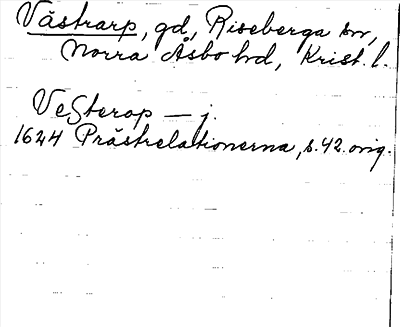 Västrarp, gd, Riseberga sn,
Norra Åsbo hd, Krist. l.
Vesterop — j.
1624 Prästrelationerna, s. 42. orig.